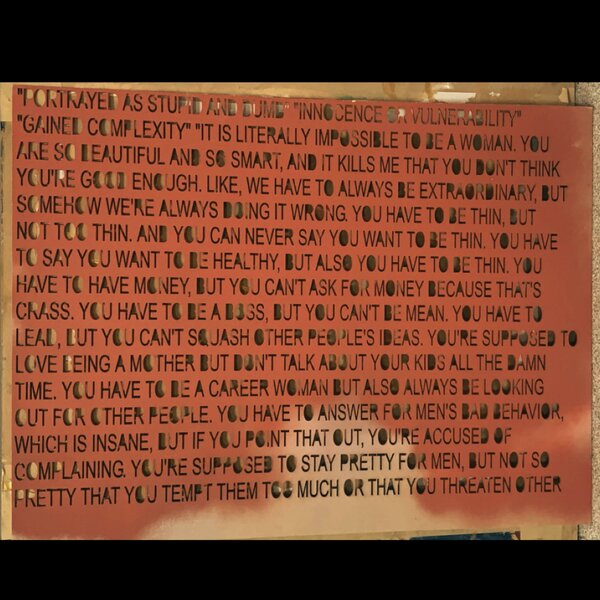 "PORTRAYED AS STUPID AND DUMB" "INNOCENCE OR VULNERABILITY"
"GAINED COMPLEXITY" "IT IS LITERALLY IMPOSSIBLE TO BE A WOMAN. YOU
ARE SO BEAUTIFUL AND SO SMART, AND IT KILLS ME THAT YOU DON'T THINK
YOU'RE GOOD ENOUGH. LIKE, WE HAVE TO ALWAYS BE EXTRAORDINARY, BUT
SOMEHOW WE'RE ALWAYS DOING IT WRONG. YOU HAVE TO BE THIN, BUT
NOT TOO THIN. AND YOU CAN NEVER SAY YOU WANT TO BE THIN. YOU HAVE
TO SAY YOU WANT TO BE HEALTHY, BUT ALSO YOU HAVE TO BE THIN. YOU
HAVE TO HAVE MONEY, BUT YOU CAN'T ASK FOR MONEY BECAUSE THAT'S
CRASS. YOU HAVE TO BE A BOSS, BUT YOU CAN'T BE MEAN. YOU HAVE TO
LEAD, BUT YOU CAN'T SQUASH OTHER PEOPLE'S IDEAS. YOU'RE SUPPOSED TO
LOVE BEING A MOTHER BUT DON'T TALK ABOUT YOUR KIDS ALL THE DAMN
TIME. YOU HAVE TO BE A CAREER WOMAN BUT ALSO ALWAYS BE LOOKING
OUT FOR OTHER PEOPLE. YOU HAVE TO ANSWER FOR MEN'S BAD BEHAVIOR,
WHICH IS INSANE, BUT IF YOU POINT THAT OUT, YOU'RE ACCUSED OF
COMPLAINING. YOU'RE SUPPOSED TO STAY PRETTY FOR MEN, BUT NOT SO
PRETTY THAT YOU TEMPT THEM TOO MUCH OR THAT YOU THREATEN OTHER